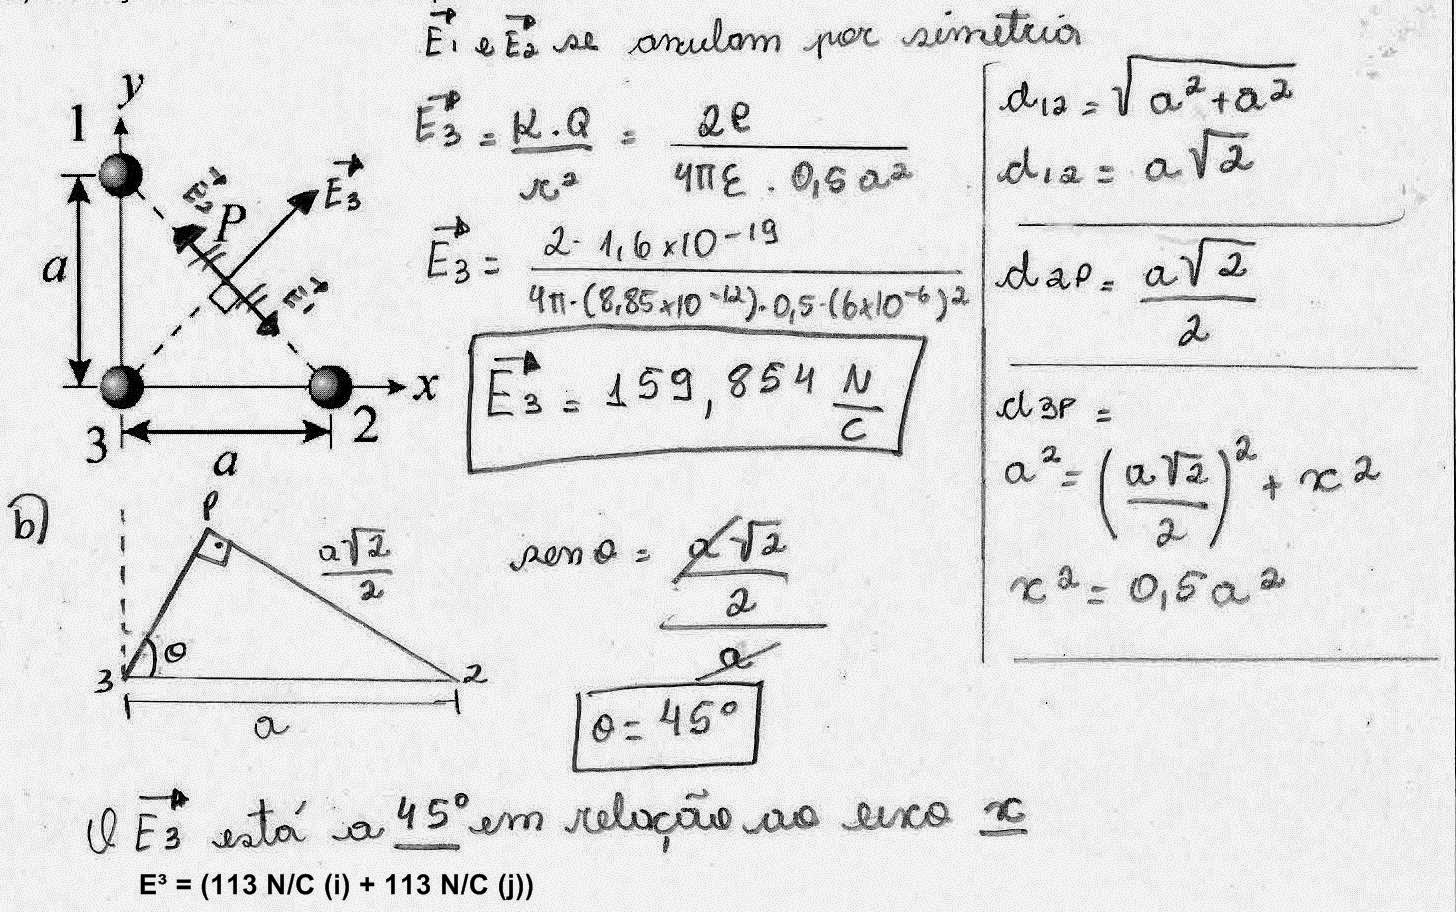 E⃗₁ e E⃗₂ se anulam por simetria
y
1
E⃗₂
P
E⃗₃
a
E⃗₁
x
3
2
a
E⃗₃ = K.Q / r² = 2e / 4πε . 0,5a²
E⃗₃ = 2. 1,6x10⁻¹⁹ / 4π.(8,85x10⁻¹²).0,5.(6x10⁻⁶)²
E⃗₃ = 159,854 N/C
d₁₂ = √a²+a²
d₁₂ = a√2
d₂P = a√2 / 2
d₃P =
a² = (a√2 / 2)² + x²
x² = 0,5a²
b)
P
a√2 / 2
θ
3
2
a
sen θ = a√2 / 2 / a
θ = 45°
O E⃗₃ está a 45° em relação ao eixo x
E³ = (113 N/C (i) + 113 N/C (j))